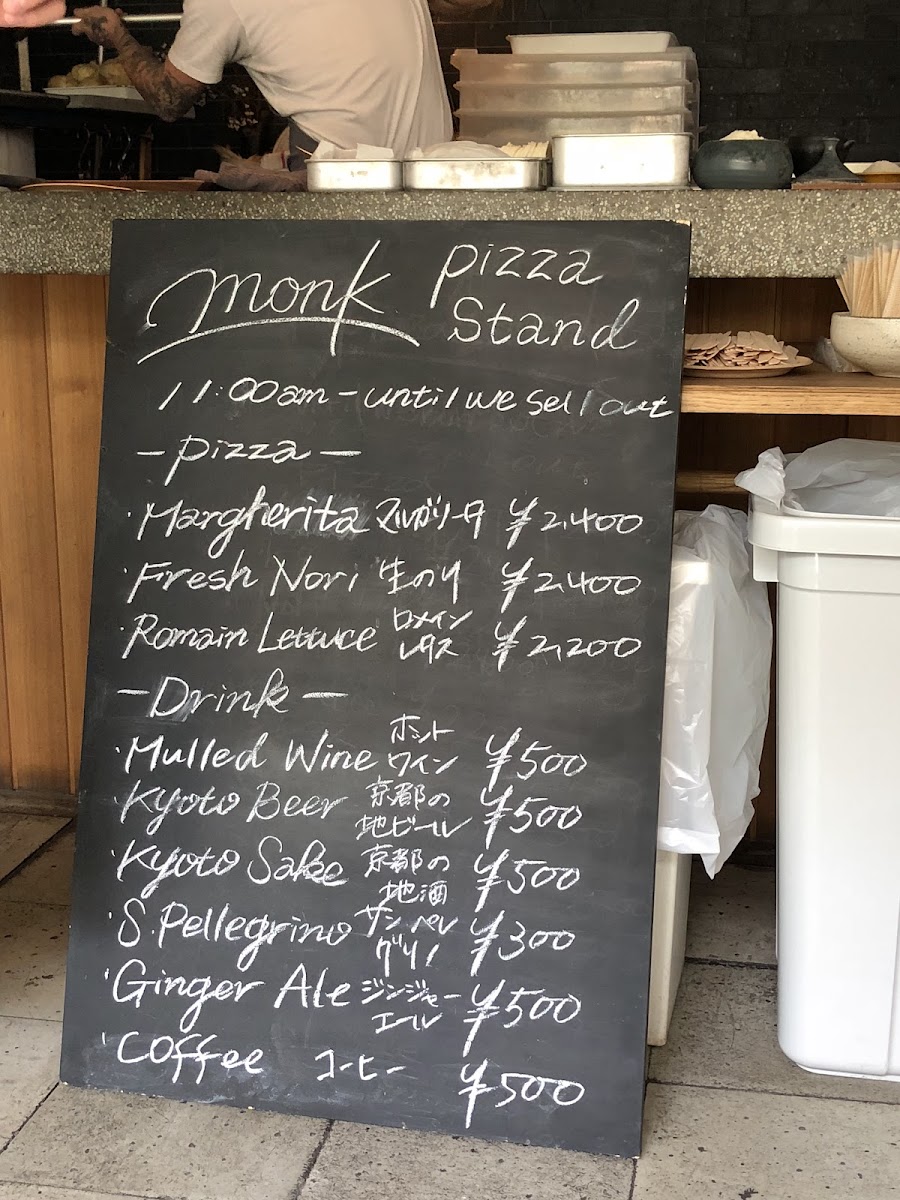 monk pizza
Stand
11:00am - until we sell out
- pizza -
・Margherita マルガリータ ¥2,400
・Fresh Nori 生のり ¥2,400
・Romain Lettuce ロメイン レタス ¥2,200
- Drink -
・Mulled Wine ホット ワイン ¥500
・Kyoto Beer 京都の 地ビール ¥500
・Kyoto Sake 京都の 地酒 ¥500
・S.Pellegrino サンペレ グリノ ¥300
・Ginger Ale ジンジャー エール ¥500
・Coffee コーヒー ¥500